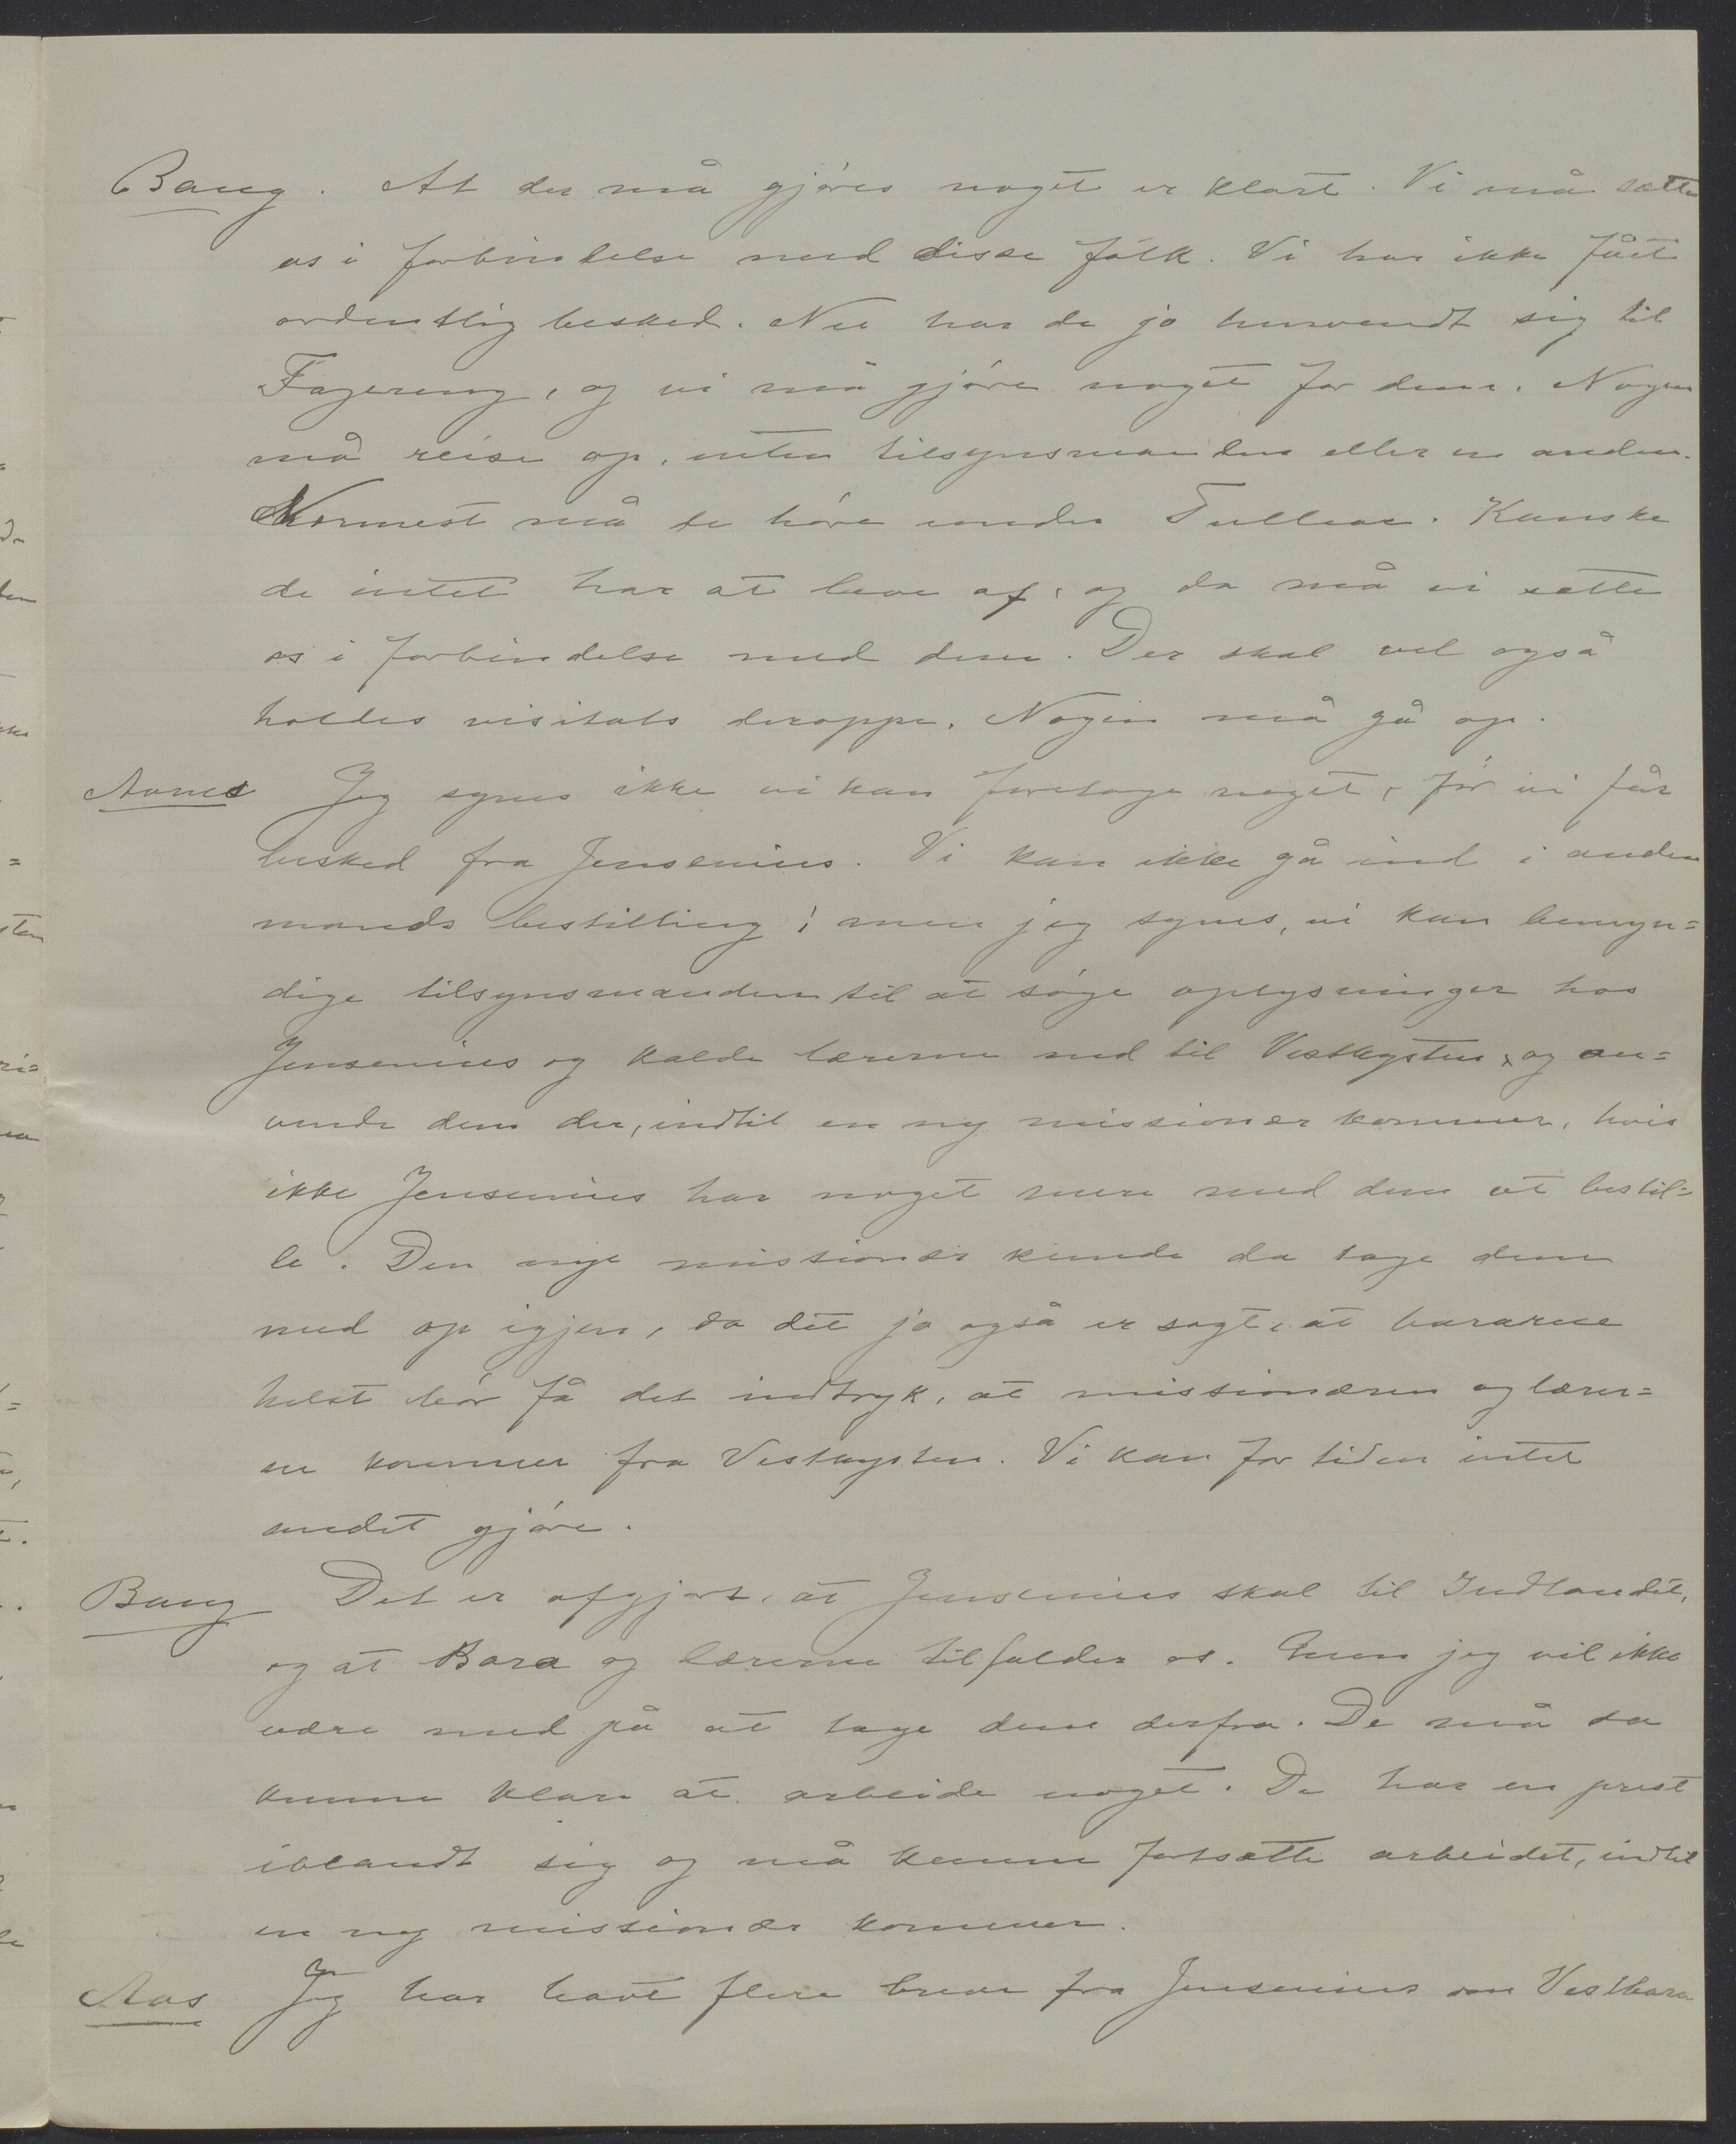 Bang. At der må gjøres noget er klart. Vi må sætte
os i forbindelse med disse folk. Vi har ikke fået
ordentlig besked. Nu har de jo henvendt sig til
Fagereng, og vi må gjøre noget for dem. Nogen
må reise op, enten tilsynsmanden eller en anden.
Nærmest må de høre under Tullear. Kanske
de intet har at leve af, og da må vi sætte
os i forbindelse med dem. Der skal vel også
holdes visitats deroppe. Nogen må gå op.
Aanes Jeg synes ikke vi kan foretage noget, før vi får
besked fra Jensenius. Vi kan ikke gå ind i anden
mands bestilling; men jeg synes, vi kan bemyn=
dige tilsynsmanden til at søge oplysninger hos
Jensenius og kalde lærerne ned til Vestkysten, og an=
vende dem der, indtil en ny missionær kommer, hvis
ikke Jensenius har noget mere med dem at bestil=
le. Den nye missionær kunde da tage dem
med op igjen, da det jo også er sagt, at bararne
helst bør få det indtryk, at missionæren og lærer=
ne kommer fra Vestkysten. Vi kan for tiden intet
andet gjøre.
Bang Det er afgjort, at Jensenius skal til Indlandet,
og at Bara og lærerne tilfalder os. Men jeg vil ikke
være med på at tage dem derfra. De må da
kunne klare at arbeide noget. De har en prest
iblandt sig og må kunne fortsætte arbeidet, indtil
en ny missionær kommer.
Aas Jeg har havt flere breve fra Jensenius om Vestbara